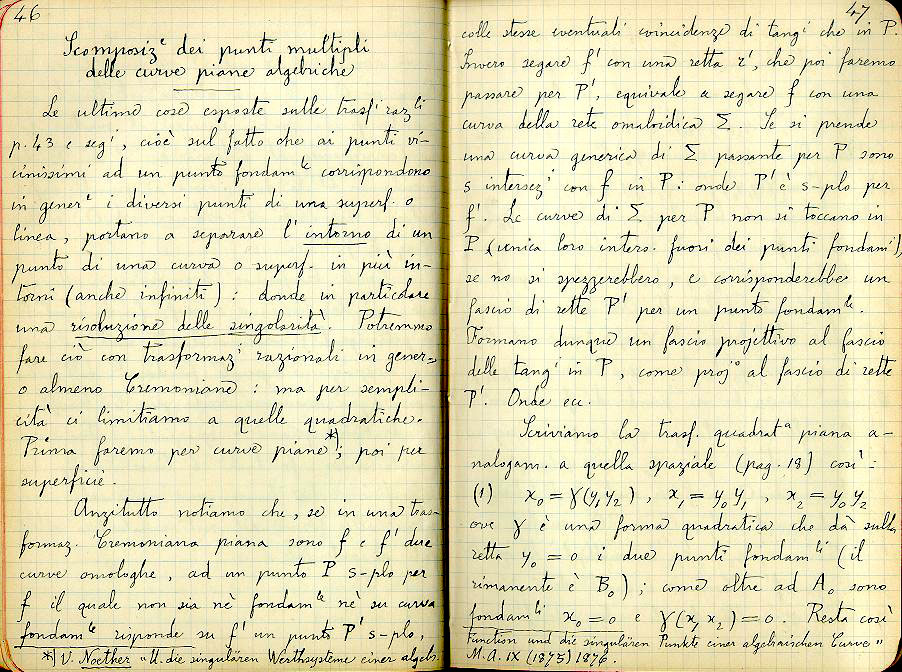 46
Scomposiz.e dei punti multipli
delle curve piane algebriche
Le ultime cose esposte sulle trasf.i raz.li
p. 43 e seg.i, cioè sul fatto che ai punti vi-
cinissimi ad un punto fondam.le corrispondono
in gener.e i diversi punti di una superf. o
linea, portano a separare l'intorno di un
punto di una curva o superf. in più in-
torni (anche infiniti): donde in particolare
una risoluzione delle singolarità. Potremmo
fare ciò con trasformaz.i razionali in gener.,
o almeno Cremoniane: ma per sempli-
cità ci limitiamo a quelle quadratiche.
Prima faremo per curve piane*); poi per
superficie.
Anzitutto notiamo che, se in una tras-
formaz. Cremoniana piana sono f e f' due
curve omologhe, ad un punto P s-plo per
f il quale non sia nè fondam.le nè su curva
fondam.le risponde su f' un punto P' s-plo,
*) V. Noether "U. die singulären Werthsysteme einer algebr.
47
colle stesse eventuali coincidenze di tang.i che in P.
Invero segare f' con una retta r', che poi faremo
passare per P', equivale a segare f con una
curva della rete omaloidica Σ. Se si prende
una curva generica di Σ passante per P sono
s intersez.i con f in P: onde P' è s-plo per
f'. Le curve di Σ per P non si toccano in
P (unica loro inters. fuori dei punti fondam.i),
se no si spezzerebbero, e corrisponderebbe un
fascio di rette P' per un punto fondam.le.
Formano dunque un fascio projettivo al fascio
delle tang.i in P, come proj.o al fascio di rette
P'. Onde ecc.
Scriviamo la trasf. quadrat.a piana a-
nalogam. a quella spaziale (pag. 18) così:
(1) x₀ = γ(y₁y₂) , x₁ = y₀y₁ , x₂ = y₀y₂
ove γ è una forma quadratica che dà sulla
retta y₀ = 0 i due punti fondam.li (il
rimanente è B₀); come oltre ad A₀ sono
fondam.li x₀ = 0 e γ(x₁x₂) = 0. Resta così
Function und die singulären Punkte einer algebraischen Curve"
M.A. IX (1875) 1876.